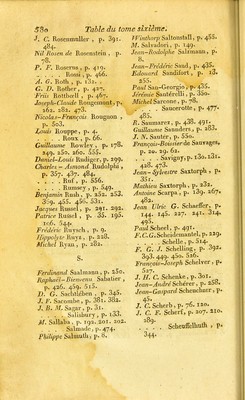 580 Table du tome sixième.
J. C. Rosenmuller, p. 391.
484.
Nil Rosen de Rosenstein, p.
78.
P. F. Roserus, p. 419.
. . . . Rossi, p. 466.
A. G. Roth, p. 131.
G. D. Rother, p. 427.
Friis Rottboll, p. 467.
Joseph-Claude Rougemont, p.
262. 281. 473.
Nicolas-François Rougnon,
p. 503.
Louis Rouppe, p. 4.
. . . . Roux, p. 66.
Guillaume Rowley, p. 178.
249. 250. 266. 555.
Daniel-Louis Rudiger, p. 299.
Charles-Asmond Rudolphi,
p. 357. 437. 484.
. . . . Ruf, p. 556.
. . . . Rumsey, p. 549.
Benjamin Rush, p. 252. 253.
309. 466. 544. 531.
Jacques Russel, p. 291. 292.
Patrice Russel, p. 35. 195.
106. 455.
Frédéric Ruysch, p. 9.
Hippolyte Ruyz, p. 228.
Michel Ryan, p. 281.
S.
Ferdinand Saalmann, p. 250.
Raphaël-Bienvenu Sabatier,
p. 426. 459. 515.
D. G. Sachtleben, p. 345.
J. F. Sacombe, p. 381. 382.
J. B. M. Sagar, p. 31.
. . . . Salisbury, p. 133.
M. Sallaba, p. 192. 201. 202.
. . . . Salmade, p. 474.
Philippe Salmuth, p. 8.
Winthorp Saltonstall, p. 455.
M. Salvadori, p. 149.
Jean-Rodolphe Salzmann, p.
8.
Jean-Frédéric Sand, p. 435.
Edouard Sandifort, p. 13.
255.
Paul San-Georgio, p. 435.
Jérôme Santérelli, p. 350.
Michel Sarcone, p. 78.
. . . . Saucerotte, p. 477.
485.
R. Saumarez, p. 438. 491.
Guillaume Saunders, p. 283.
J. N. Sauter, p. 550.
François-Boissier de Sauvages,
p. 22. 29. 61.
. . . . Savigny, p. 130. 131.
428. 475.
Jean-Sylvestre Saxtorph, p.
351.
Mathieu Saxtorph, p. 232.
Antoine Scarpa, p. 139. 267.
482.
Jean Ulric G. Schaeffer, p.
144. 145. 227. 241. 314.
493.
Paul Scheel, p. 491.
F.C.G. Scheidemantel, p. 229.
. . . . Schelle, p. 514.
F. G. J. Schelling, p. 392.
393. 449. 450. 526.
François-Joseph Schelver, p.
527.
J. H. C. Schenke, p. 301.
Jean-André Schérer, p. 258.
Jean-Gaspard Scheuchzer, p.
45.
J. C. Scherb, p. 76. 120.
J. C. F. Scherf, p. 207. 210.
289.
. . . . Scheuffelhuth, p.
344.